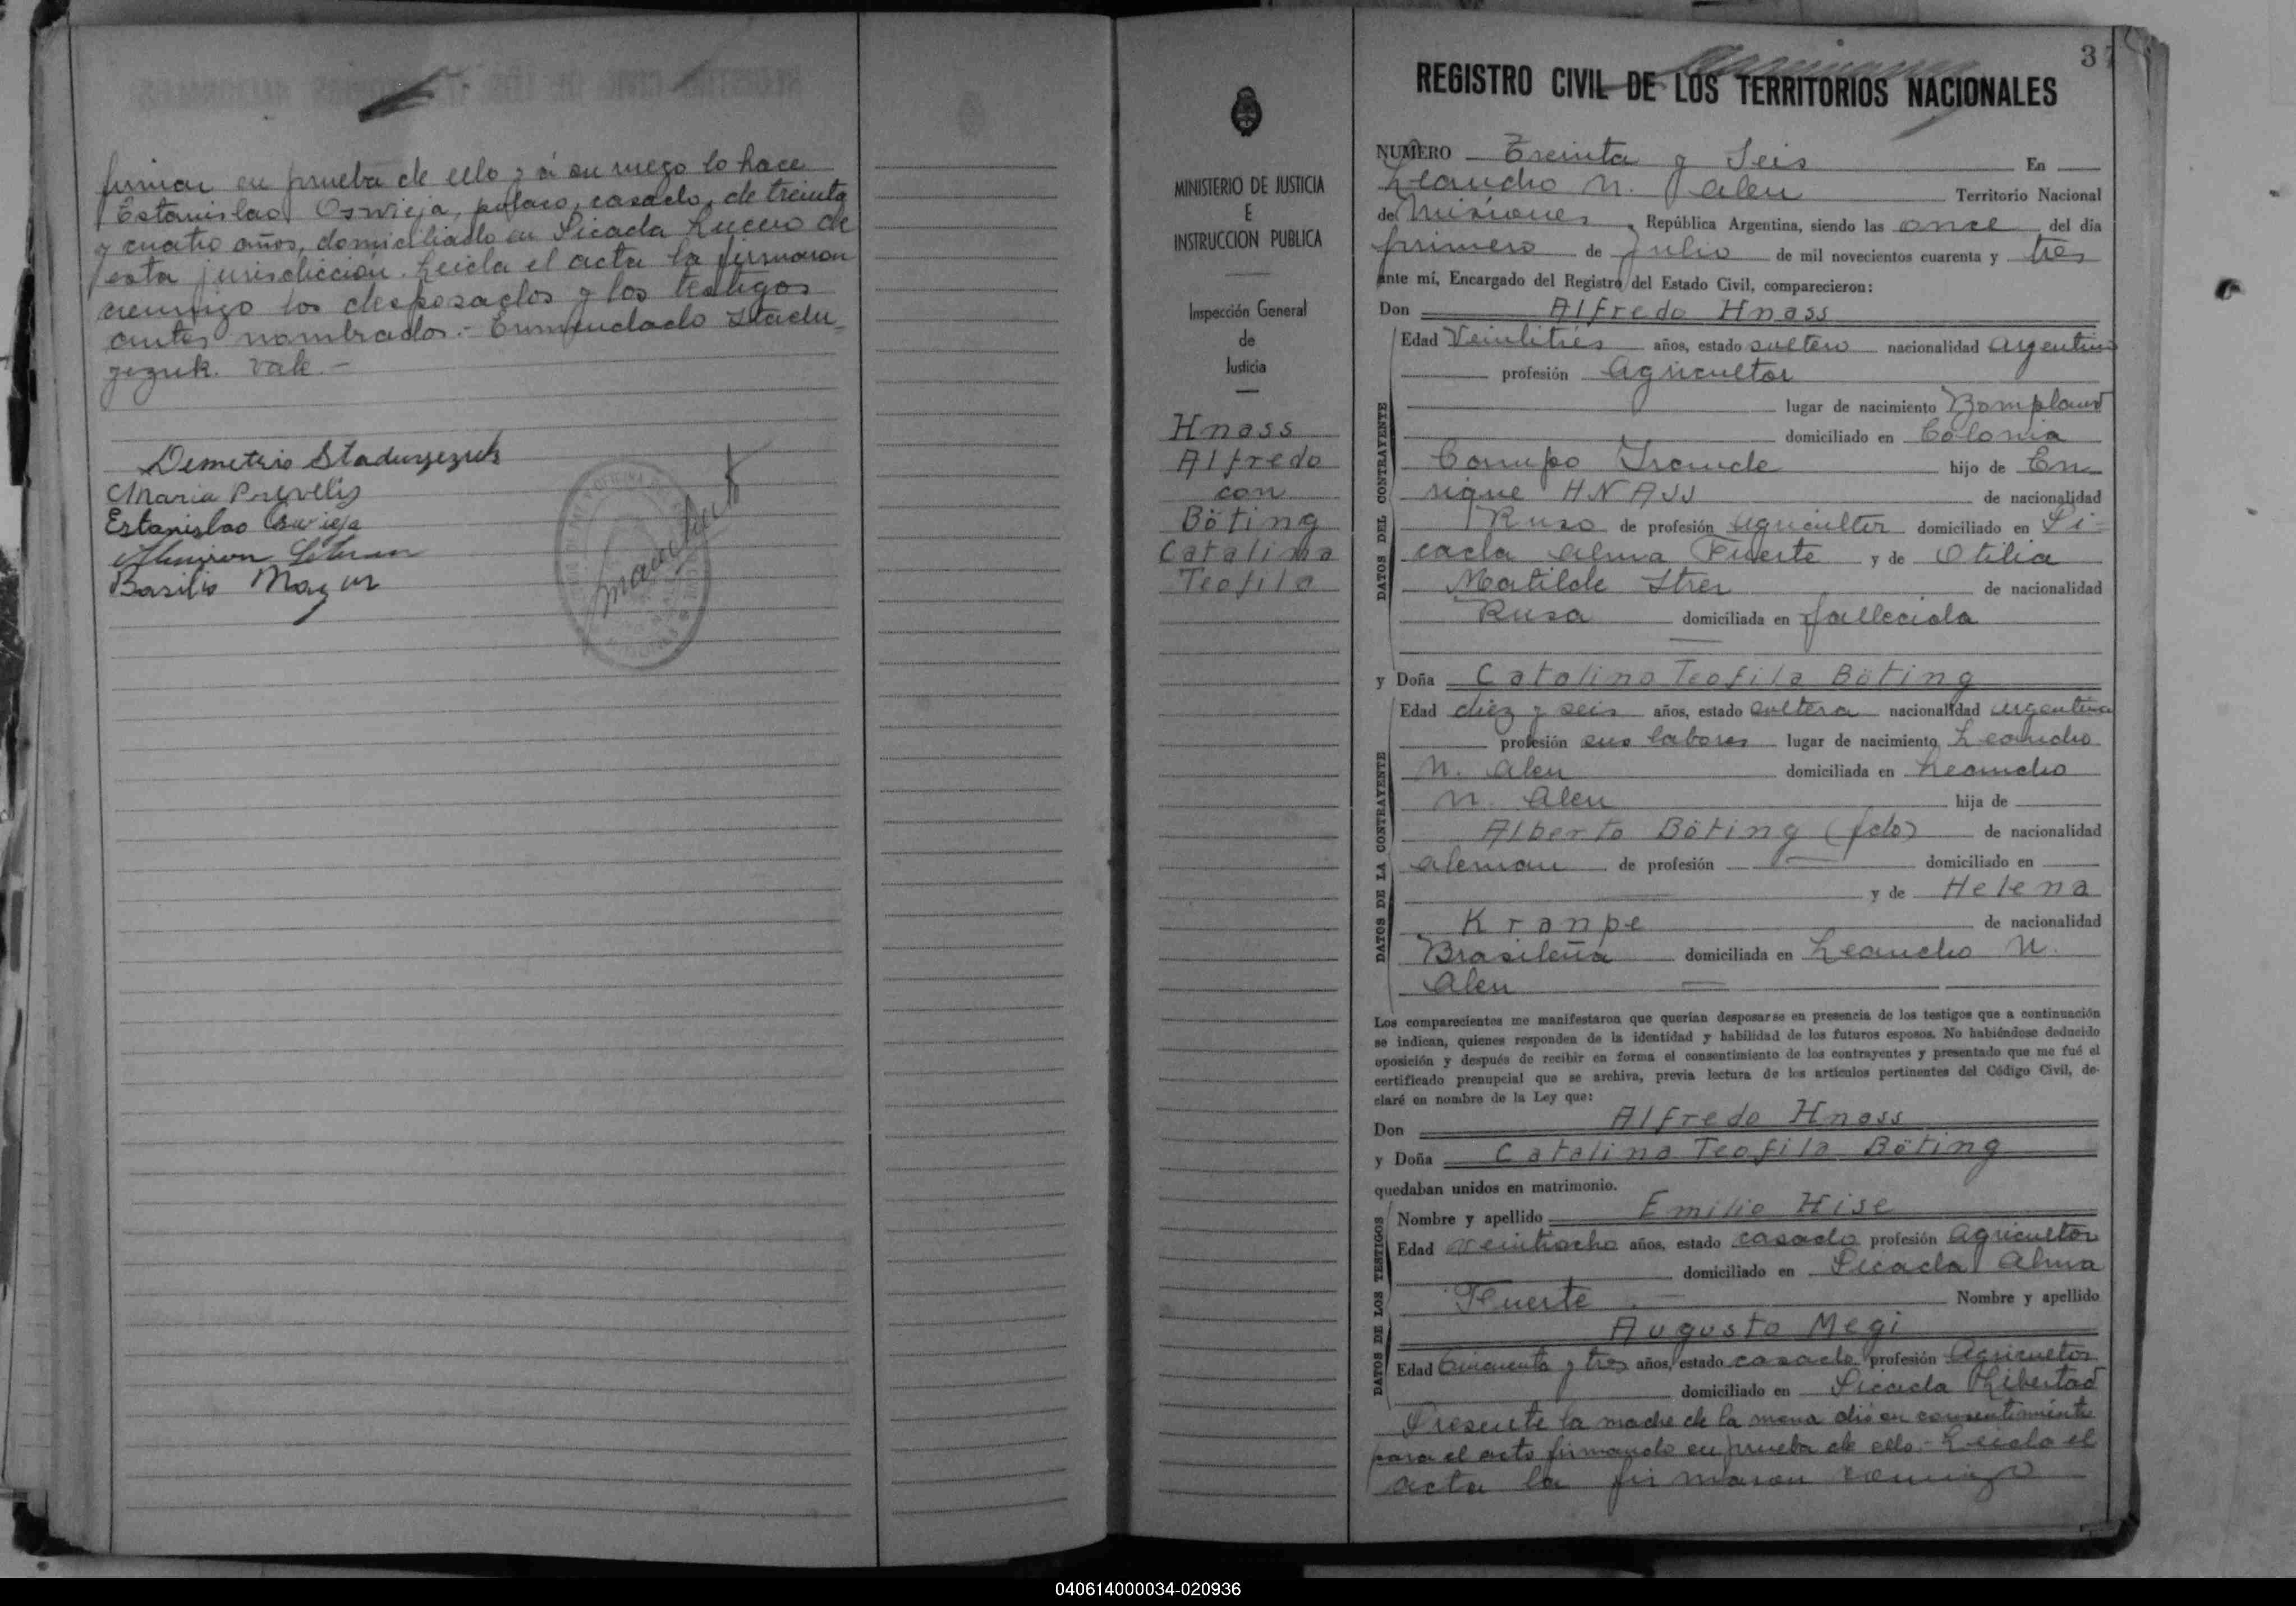 firmar en prueba de ello y á su ruego lo hace
Estanislao Oswieja, polaco, casado, de treinta
y cuatro años, domiciliado en Picada Lucero de
esta jurisdicción. Leida el acta la firmaron
conmigo los desposados y los testigos
antes nombrados.- Enmendado Stadu-
yezuk. Vale.-
Demetrio Staduyezuk
Maria Prevelis
Estanislao Oswieja
Basilio Mazur
MINISTERIO DE JUSTICIA
E
INSTRUCCION PUBLICA
Inspección General
de
Justicia
Hnass
Alfredo
con
Böting
Catalina
Teofila
37
REGISTRO CIVIL DE LOS TERRITORIOS NACIONALES
NUMERO Treinta y Seis En
Leandro N. Alem Territorio Nacional
de Misiones, República Argentina, siendo las once del día
primero de Julio de mil novecientos cuarenta y tres
ante mí, Encargado del Registro del Estado Civil, comparecieron:
Don Alfredo Hnass
DATOS DEL CONTRAYENTE
Edad Veintitrés años, estado soltero nacionalidad argentino
profesión Agricultor
lugar de nacimiento Bompland
domiciliado en Colonia
Campo Grande hijo de En
rique HNASS de nacionalidad
Ruso de profesión Agricultor domiciliado en Pi-
cada Alma Fuerte y de Otilia
Matilde Strer de nacionalidad
Rusa domiciliada en fallecida
y Doña Catalina Teofila Böting
DATOS DE LA CONTRAYENTE
Edad diez y seis años, estado soltera nacionalidad argentina
profesión sus labores lugar de nacimiento Leandro
N. Alem domiciliada en Leandro
N. Alem hija de
Alberto Böting (fdo) de nacionalidad
aleman de profesión — domiciliado en
y de Helena
Kranpe de nacionalidad
Brasileña domiciliada en Leandro N.
Alem
Los comparecientes me manifestaron que querían desposarse en presencia de los testigos que a continuación
se indican, quienes responden de la identidad y habilidad de los futuros esposos. No habiéndose deducido
oposición y después de recibir en forma el consentimiento de los contrayentes y presentado que me fué el
certificado prenupcial que se archiva, previa lectura de los artículos pertinentes del Código Civil, de-
claré en nombre de la Ley que:
Don Alfredo Hnass
y Doña Catalina Teofila Böting
quedaban unidos en matrimonio.
DATOS DE LOS TESTIGOS
Nombre y apellido Emilio Hise
Edad veintiocho años, estado casado profesión Agricultor
domiciliado en Picada Alma
Fuerte Nombre y apellido
Augusto Megi
Edad Cincuenta y tres años, estado casado profesión Agricultor
domiciliado en Picada Libertad
Presente la madre de la mena dió su consentimiento
para el acto firmando en prueba de ello.- Leida el
acta la firmaron conmigo
040614000034-020936